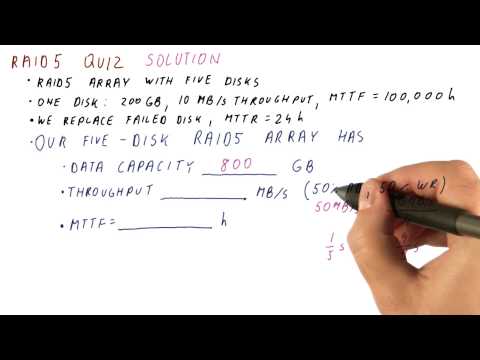 RAID5 QUIZ SOLUTION
• RAID5 ARRAY WITH FIVE DISKS
• ONE DISK: 200GB, 10 MB/s THROUGHPUT, MTTF = 100,000 h
• WE REPLACE FAILED DISK, MTTR = 24h
• OUR FIVE-DISK RAID5 ARRAY HAS
• DATA CAPACITY 800 GB
• THROUGHPUT ________ MB/s (50% , 50% WR)
50MB/
• MTTF= ________ h
1/5 s